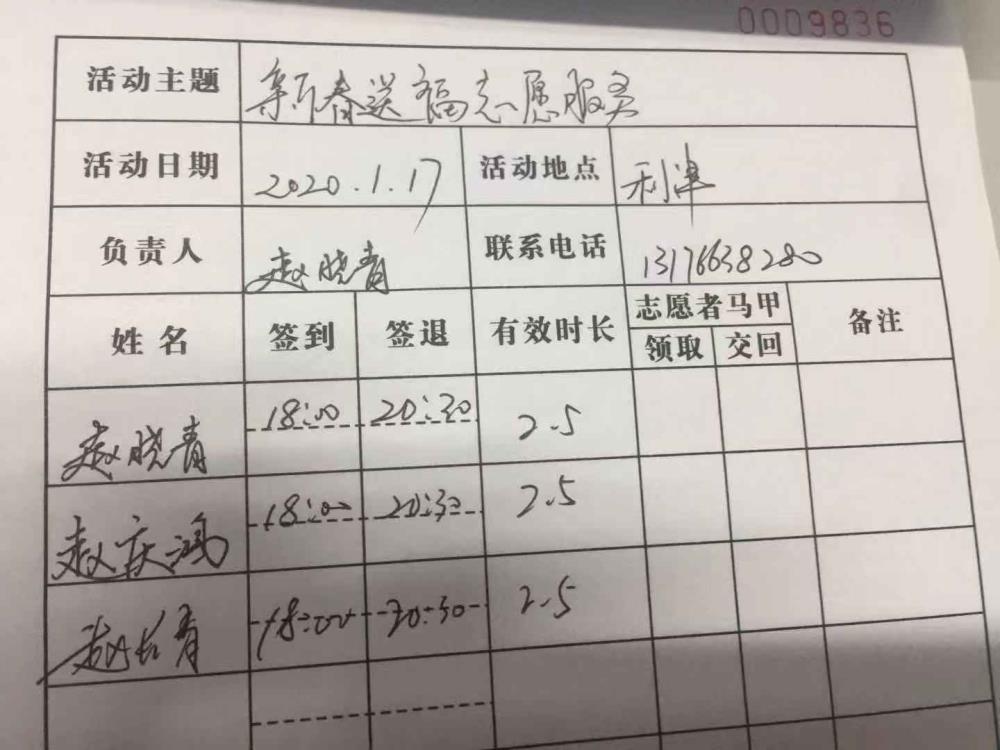 0009836
活动主题 新春送福志愿服务
活动日期 2020.1.17 活动地点 利津
负责人 赵晓青 联系电话 13176638280
姓名 签到 签退 有效时长 志愿者马甲 备注
领取 交回
赵晓青 18:00 20:30 2.5
赵庆鸿 18:00 20:30 2.5
赵长青 18:00 20:30 2.5